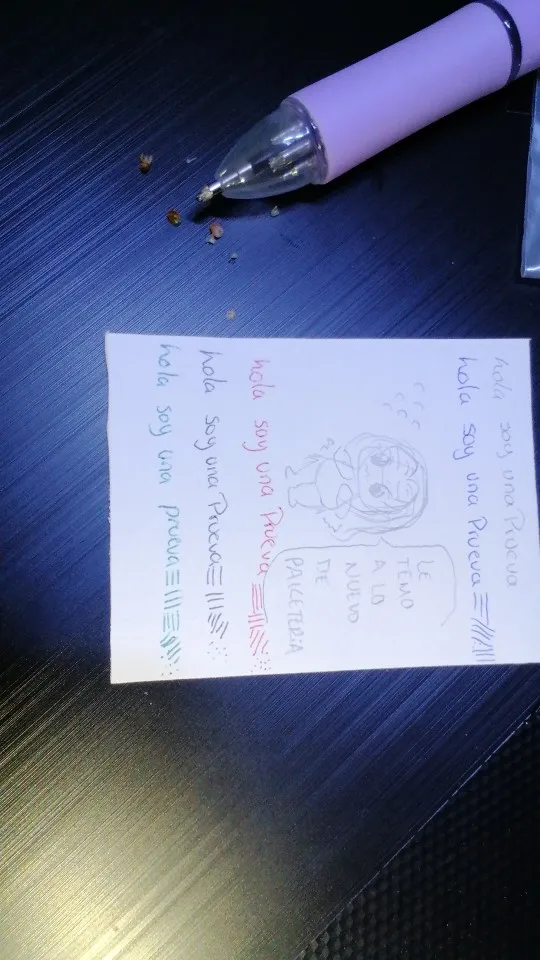 hola soy una Prueva
hola soy una Prueva
LE
TEMO
A LO
NUEVO
DE
hola soy una Prueva
hola soy una Prueva
hola soy una prueva